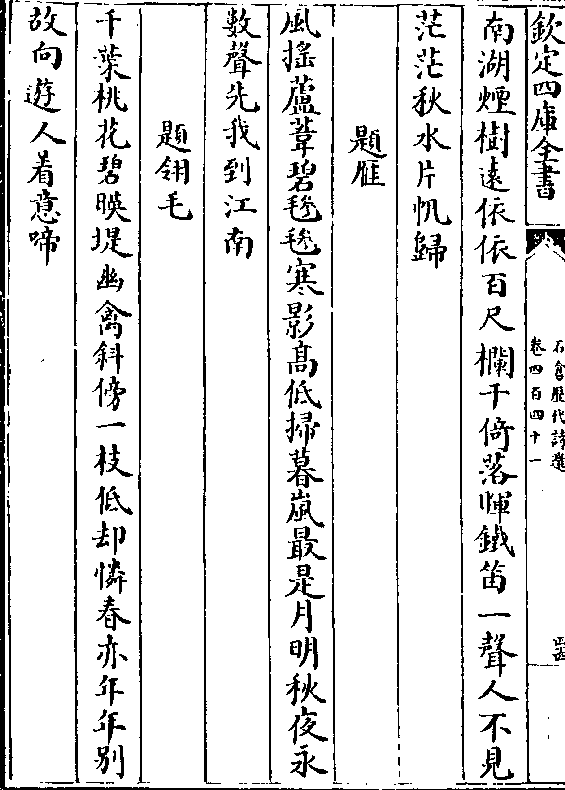 欽定四庫全書
石倉歷代詩選
卷四百四十一
南湖煙樹遠依依百尺欄干倚落暉鐵笛一聲人不見
茫茫秋水片帆歸
題雁
風搖蘆葦碧毿毿寒影髙低掃暮嵐最是月明秋夜永
數聲先我到江南
題翎毛
千葉桃花碧暎堤幽禽斜傍一枝低却憐春亦年年别
故向遊人着意啼